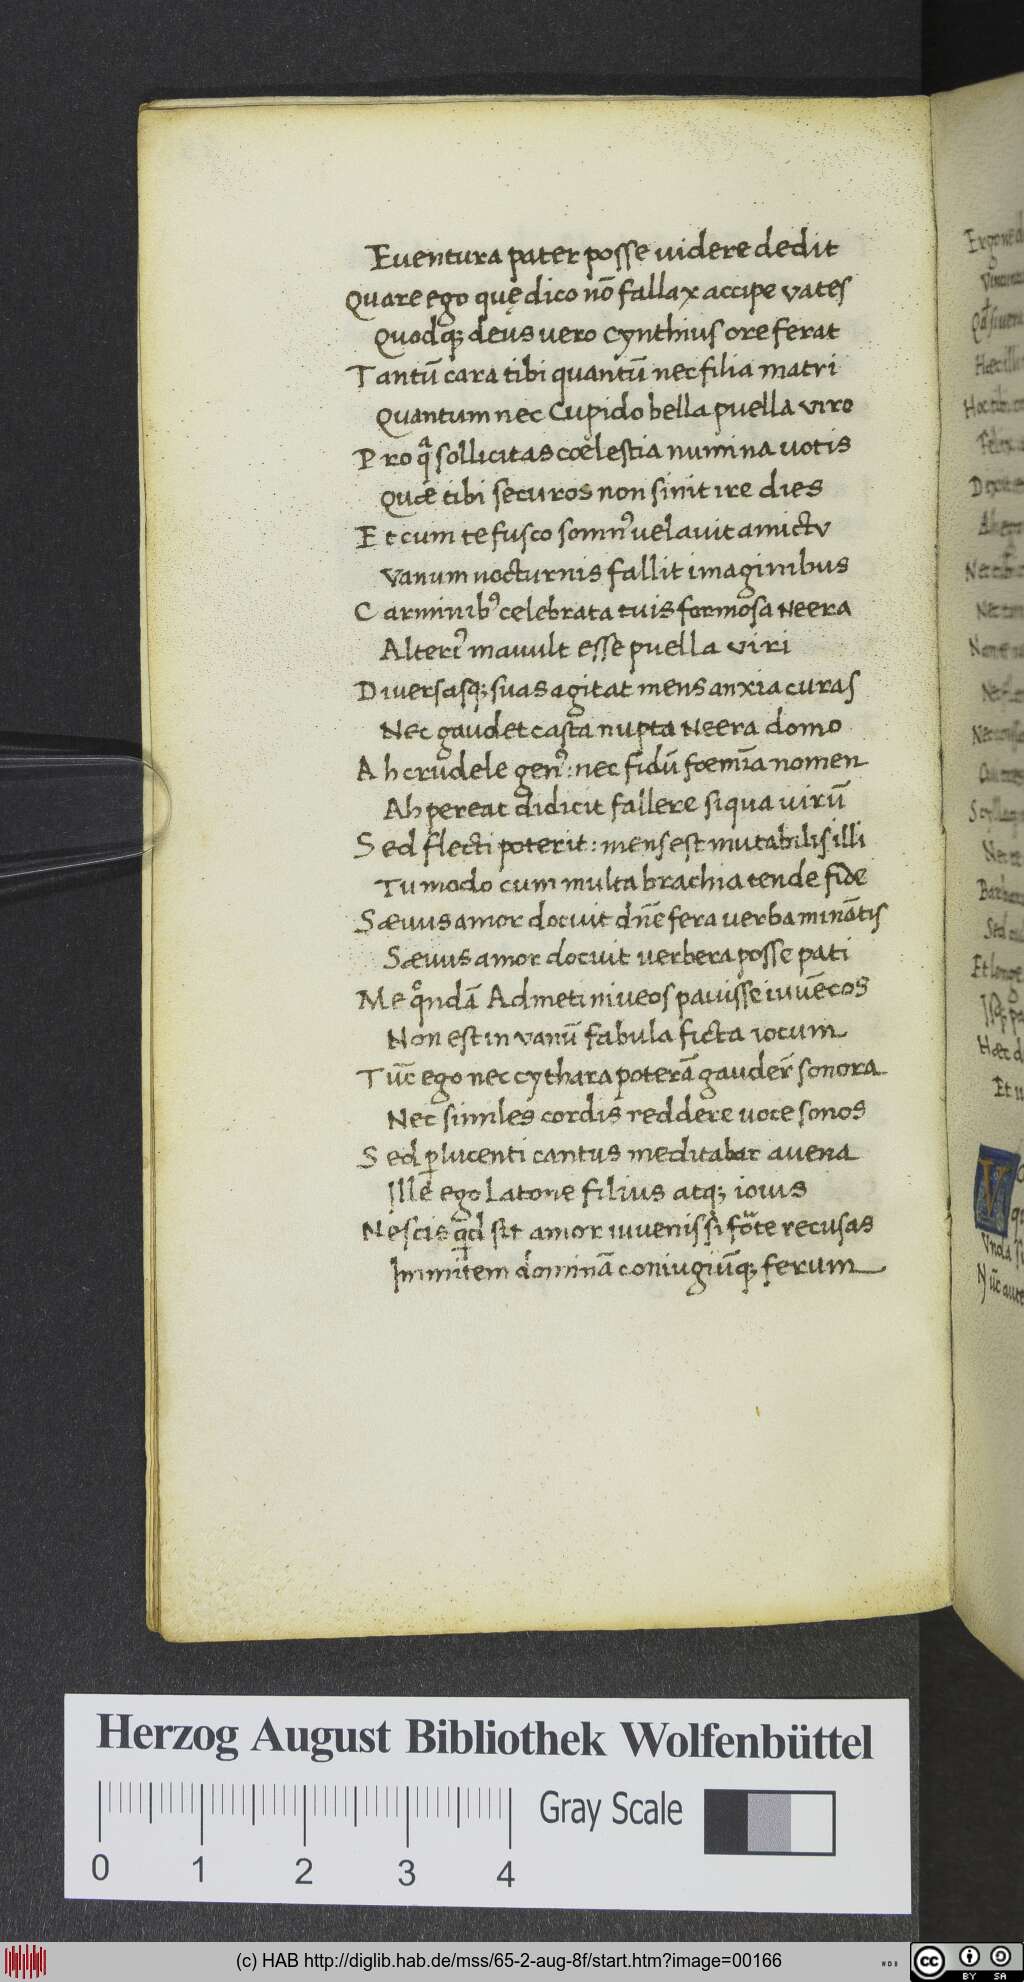 Euentura pater posse uidere dedit
Quare ego quę dico nō fallax accipe vates
Quodq; deus uero Cynthius ore ferat
Tantū cara tibi quantū nec filia matri
Quantum nec Cupido bella puella viro
Pro qͣ sollicitas coelestia numina uotis
Quæ tibi securos non sinit ire dies
Et cum te fusco somnꝰ uelauit amictv
Vanum noctvrnis fallit imaginibus
Carminibꝰ celebrata tuis formosa Neera
Alteriꝰ mauult esse puella viri
Diuersasq; suas agitat mens anxia curas
Nec gaudet casta nupta Neera domo
Ah crudele genꝰ: nec fidū foemīa nomen
Ah pereat didicit fallere siqua uirū
Sed flecti poterit: mens est mutabilis illi
Tu modo cum multa brachia tende fide
Sæuus amor docuit dn̄e fera uerba minātis
Sæuus amor docuit uerbera posse pati
Me qͦndā Admeti niueos pauisse iuuēcos
Non est in vanū fabula ficta iocum
Tūc ego nec cythara poterā gauder̄ sonora
Nec similes cordis reddere uoce sonos
Sed ꝑlucenti cantus meditabar auena
Ille ego Latone filius atq; iouis
Nescis qͥd sit amor iuuenis si fōte recusas
Immitem dominā coniugiūq; ferum
Herzog August Bibliothek Wolfenbüttel
Gray Scale
0 1 2 3 4
(c) HAB http://diglib.hab.de/mss/65-2-aug-8f/start.htm?image=00166
cc BY SA